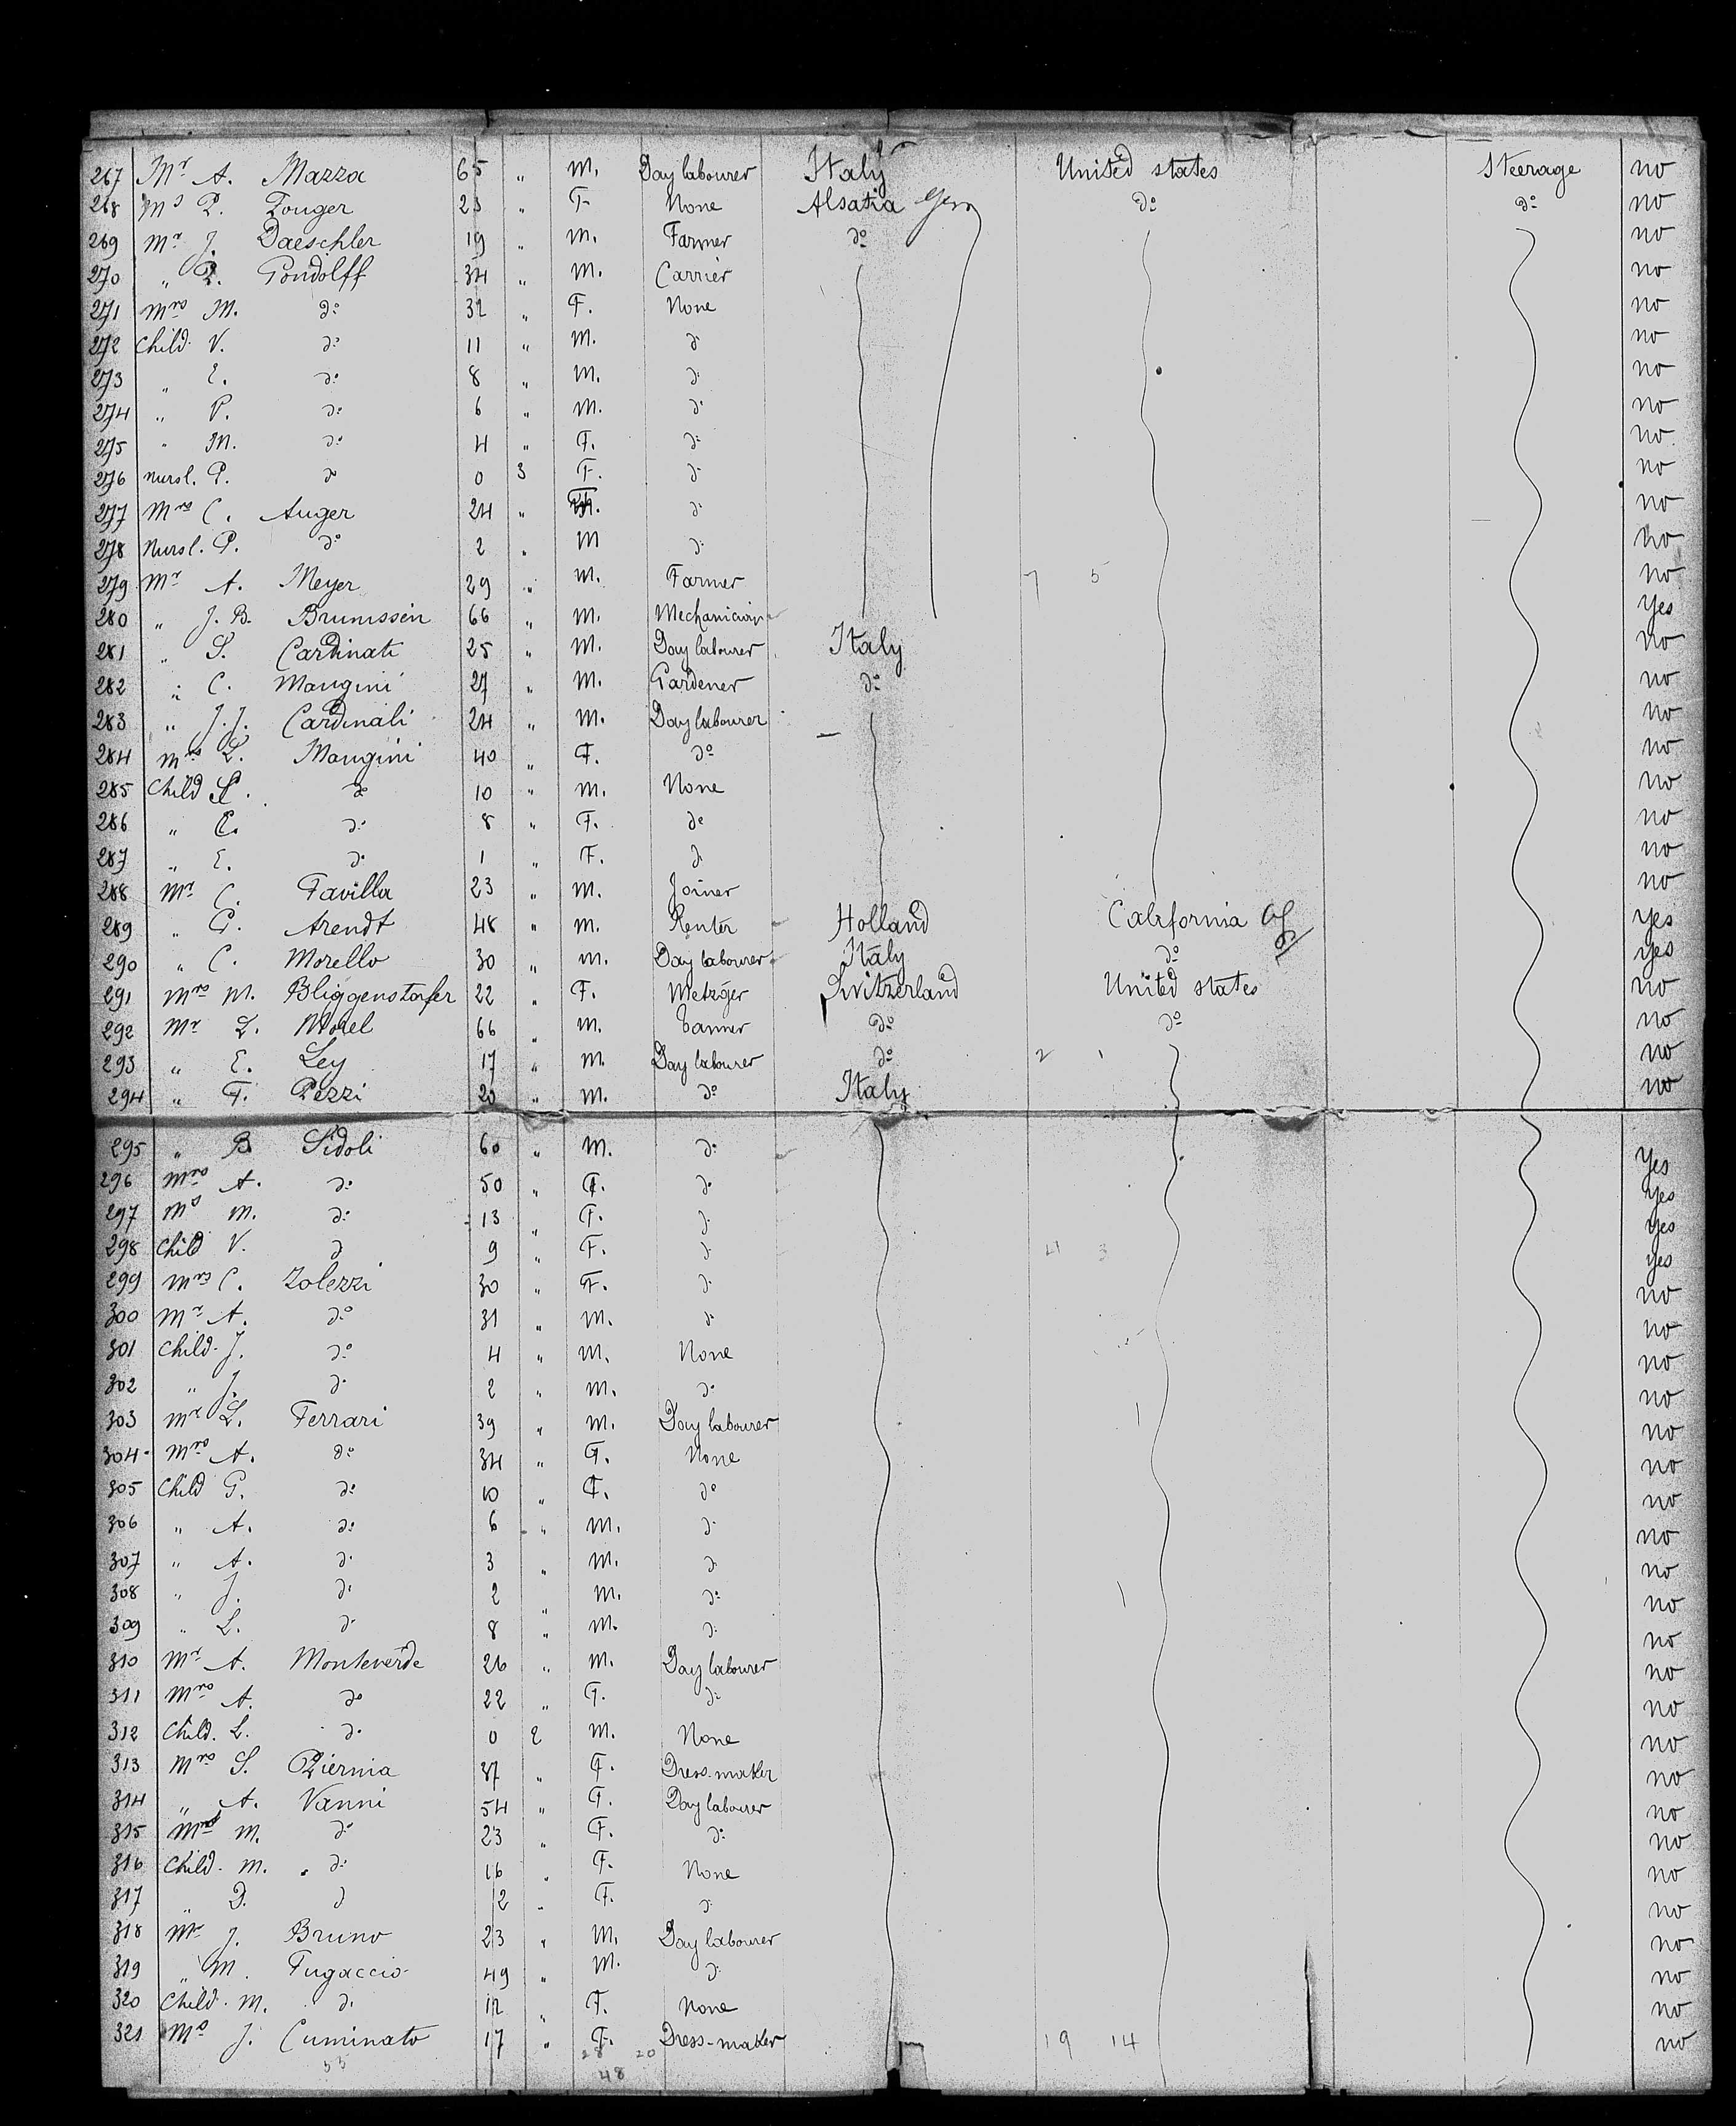 267 Mr A. Mazza 65 " M. Day labourer Italy United states Steerage no
268 Ms P. Zouger 23 " F. None Alsatia Ger do do no
269 Mr J. Daeschler 19 " M. Farmer do no
270 " Gondolff 34 " M. Carrier no
271 Mrs M. do 32 " F. None no
272 Child V. do 11 " M. do no
273 " E. do 8 " M. do no
274 " P. do 6 " M. do no
275 " M. do 4 " F. do no
276 nursl. P. do 0 3 F. do no
277 Mrs C. Auger 24 " F. do no
278 Nursl. P. do 2 " M do no
279 Mr A. Meyer 29 " M. Farmer 7 5 no
280 " J. B. Brunissen 66 " M. Mechanician Yes
281 " S. Cardinati 25 " M. Day labourer Italy no
282 " C. Mangini 27 " M. Gardener do no
283 " J. J. Cardinali 24 " M. Day labourer no
284 Mrs L. Mangini 40 " F. do no
285 Child do 10 " M. None no
286 " C. do 8 " F. do no
287 " E. do 1 " F. do no
288 Mr C. Favilla 23 " M. Joiner no
289 " G. Arendt 48 " M. Renter Holland California yes
290 " C. Morello 30 " M. Day labourer Italy do yes
291 Mrs M. Bliggenstorfer 22 " F. Metzger Switzerland United states no
292 Mr L. Morel 66 " M. Tanner do do no
293 " E. Ley 17 " M. Day labourer do 2 1 no
294 " F. Pezzi 20 " M. do Italy no
295 " B Sidoli 60 " M. do Yes
296 Mrs A. do 50 " F. do yes
297 Ms M. do 13 " F. do yes
298 Child V. do 9 " F. do 4 3 yes
299 Mrs C. Zolezzi 30 " F. do no
300 Mr A. do 31 " M. do no
301 Child. J. do 4 " M. None no
302 " J. do 2 " M. do no
303 Mr L. Ferrari 39 " M. Day labourer 1 no
304 Mrs A. do 34 " F. None no
305 Child G. do 10 " F. do no
306 " A. do 6 " M. do no
307 " A. do 3 " M. do no
308 " J. do 2 " M. do 1 no
309 " L. do 8 " M. do no
310 Mr A. Monteverde 26 " M. Day labourer no
311 Mrs A. do 22 " F. do no
312 Child. L. do 0 2 M. None no
313 Mrs S. Piernia 37 " F. Dress-maker no
314 " A. Vanni 54 " F. Day labourer no
315 M. do 23 " F. do no
316 Child. M. do 16 " F. None no
317 " D. do 12 " F. do no
318 Mr J. Bruno 23 " M. Day labourer no
319 " M. Fugaccio 49 " M. do no
320 Child. M. do 12 " F. None no
321 Ms J. Cuminato 17 " F. Dress-maker 19 14 no
28 20
48